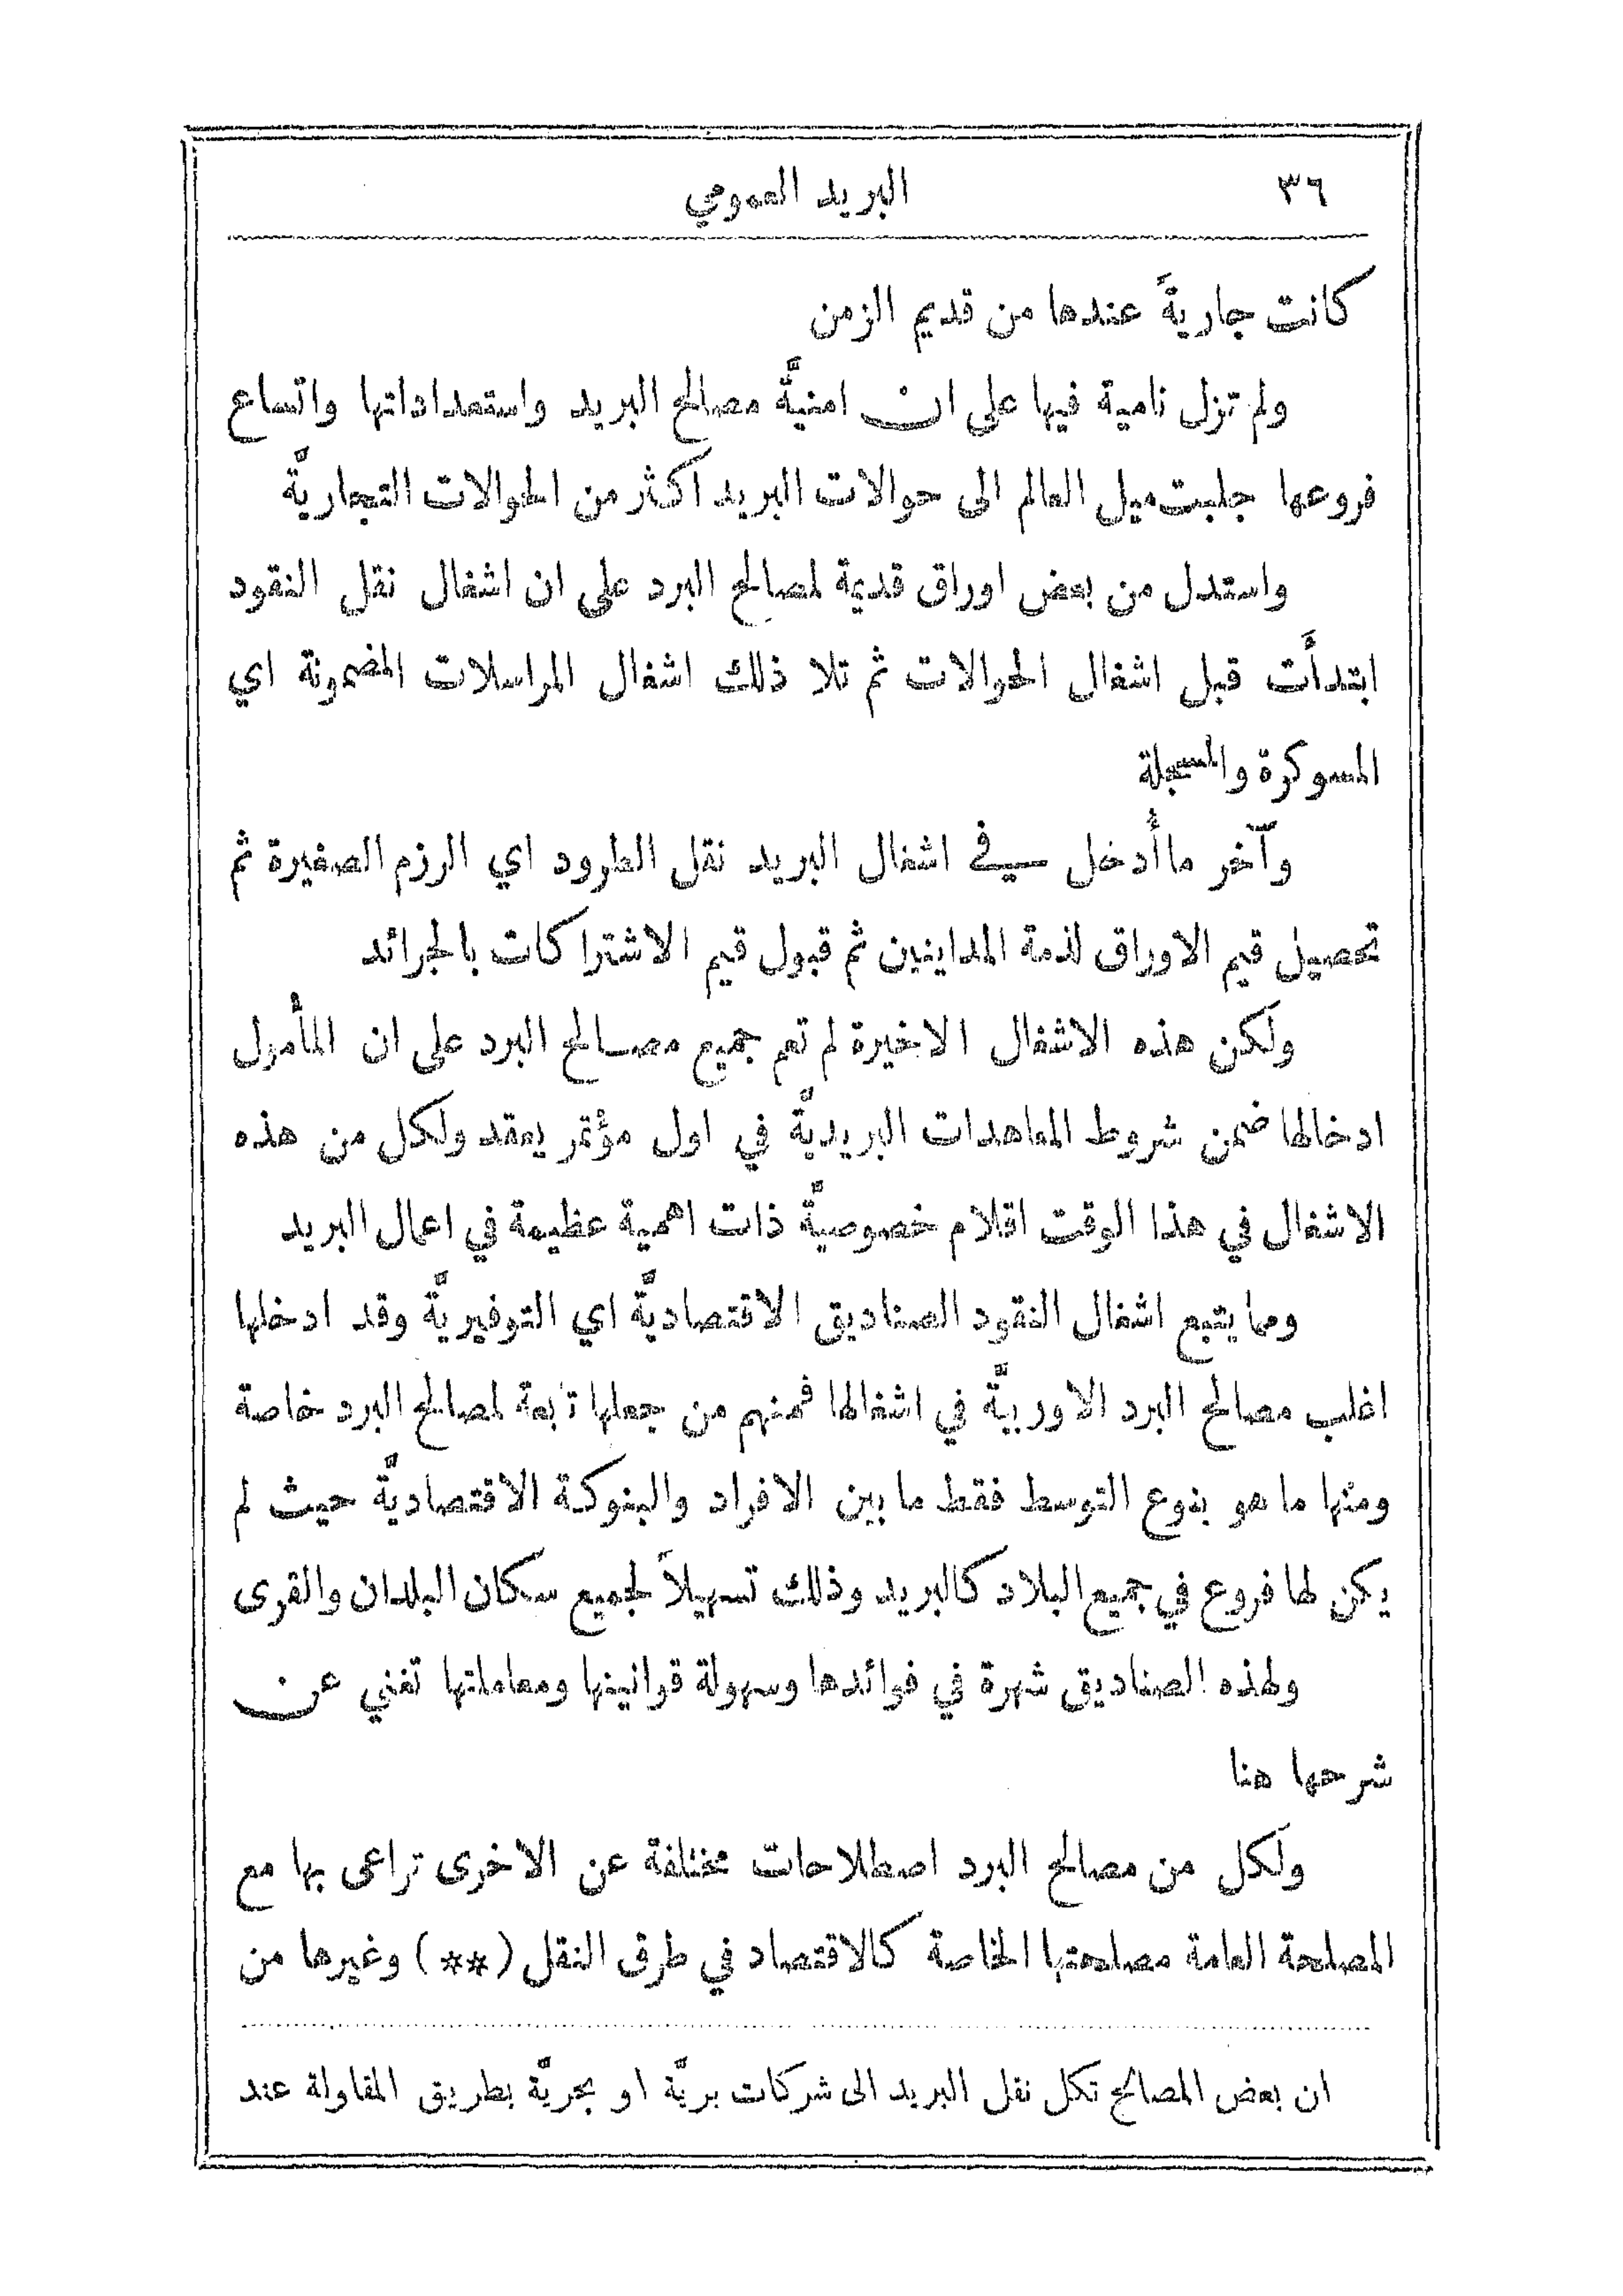 ٣٦ البريد العمومي
كانت جاريةً عندها من قديم الزمن
ولم تزل نامية فيها على ان امنيَّة مصالح البريد واستعداداتها واتساع
فروعها جلبت ميل العالم الى حوالات البريد اكثر من الحوالات التجاريَّة
واستدل من بعض اوراق قديمة لمصالح البرد على ان اشغال نقل النقود
ابتدأَت قبل اشغال الحوالات ثم تلا ذلك اشغال المراسلات المضمونة اي
المسوكرة والمسجلة
وآخر ما أُدخل في اشغال البريد نقل الطرود اي الرزم الصغيرة ثم
تحصيل قيم الاوراق لذمة المداينين ثم قبول قيم الاشتراكات بالجرائد
ولكن هذه الاشغال الاخيرة لم تعم جميع مصالح البرد على ان المأمول
ادخالها ضمن شروط المعاهدات البريديَّة في اول مؤتمر يعقد ولكل من هذه
الاشغال في هذا الوقت اقلام خصوصيَّة ذات اهمية عظيمة في اعمال البريد
ومما يتبع اشغال النقود الصناديق الاقتصاديَّة اي التوفيريَّة وقد ادخلها
اغلب مصالح البرد الاوربيَّة في اشغالها فمنهم من جعلها تابعة لمصالح البرد خاصة
ومنها ما هو بنوع التوسط فقط ما بين الافراد والبنوكة الاقتصاديَّة حيث لم
يكن لها فروع في جميع البلاد كالبريد وذلك تسهيلاً لجميع سكان البلدان والقرى
ولهذه الصناديق شهرة في فوائدها وسهولة قوانينها ومعاملتها تغني عن
شرحها هنا
ولكل من مصالح البرد اصطلاحات مختلفة عن الاخرى تراعى بها مع
المصلحة العامة مصلحتها الخاصة كالاقتصاد في طرق النقل (**) وغيرها من
ان بعض المصالح تكل نقل البريد الى شركات بريَّة او بحريَّة بطريق المقاولة عند